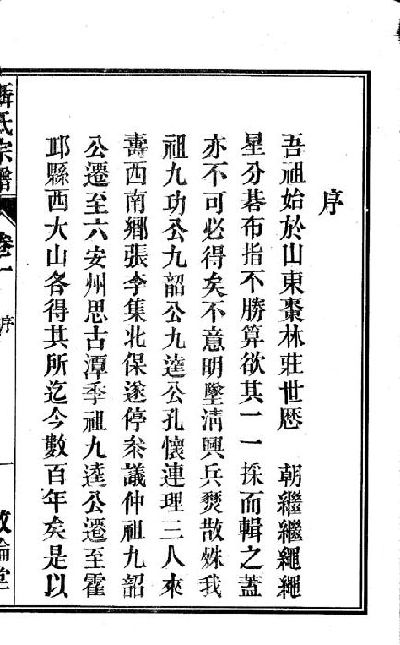 序
吾祖始於山東棗林莊世歷　朝繼繼繩繩
星分碁布指不勝算欲其一一採而輯之蓋
亦不可必得矣不意明墜清興兵燹散姝我
祖九功公九韶公九逵公孔懷連理三人來
壽西南鄉張李集北保遂停叅議仲祖九韶
公遷至六安州思古潭季祖九逵公遷至霍
邱縣西大山各得其所迄今數百年矣是以
氏宗譜
卷一
序
敦倫堂